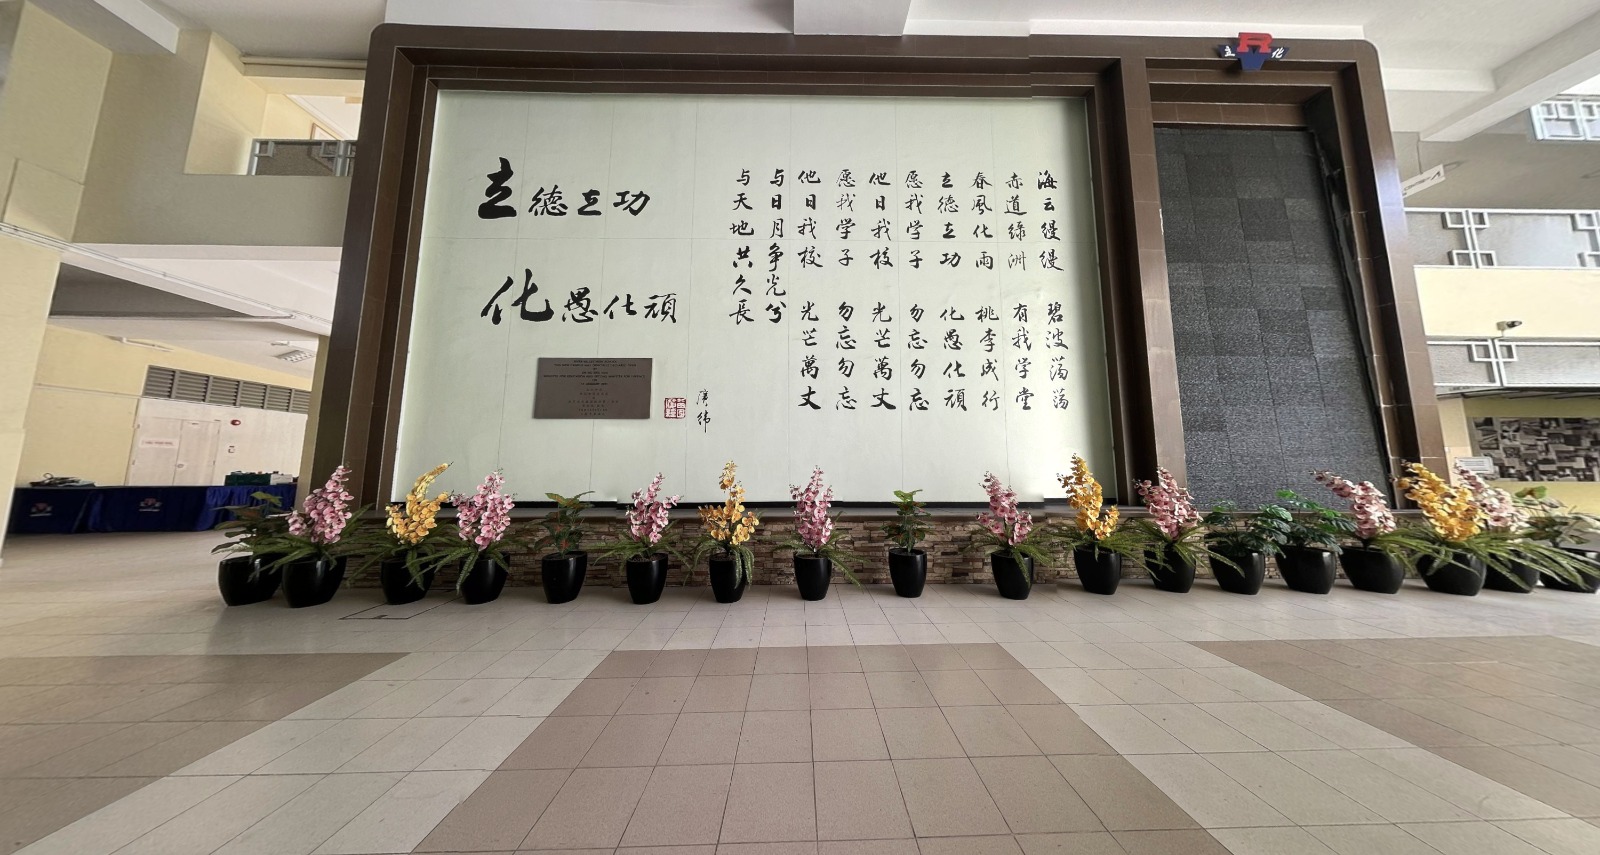 立德立功
化愚化頑
海云缦缦 碧波荡荡
赤道綠洲 有我学堂
春風化雨 桃李成行
立德立功 化愚化頑
愿我学子 勿忘勿忘
他日我校 光芒萬丈
愿我学子 勿忘勿忘
他日我校 光芒萬丈
与日月争光兮
与天地共久長
立 R 化